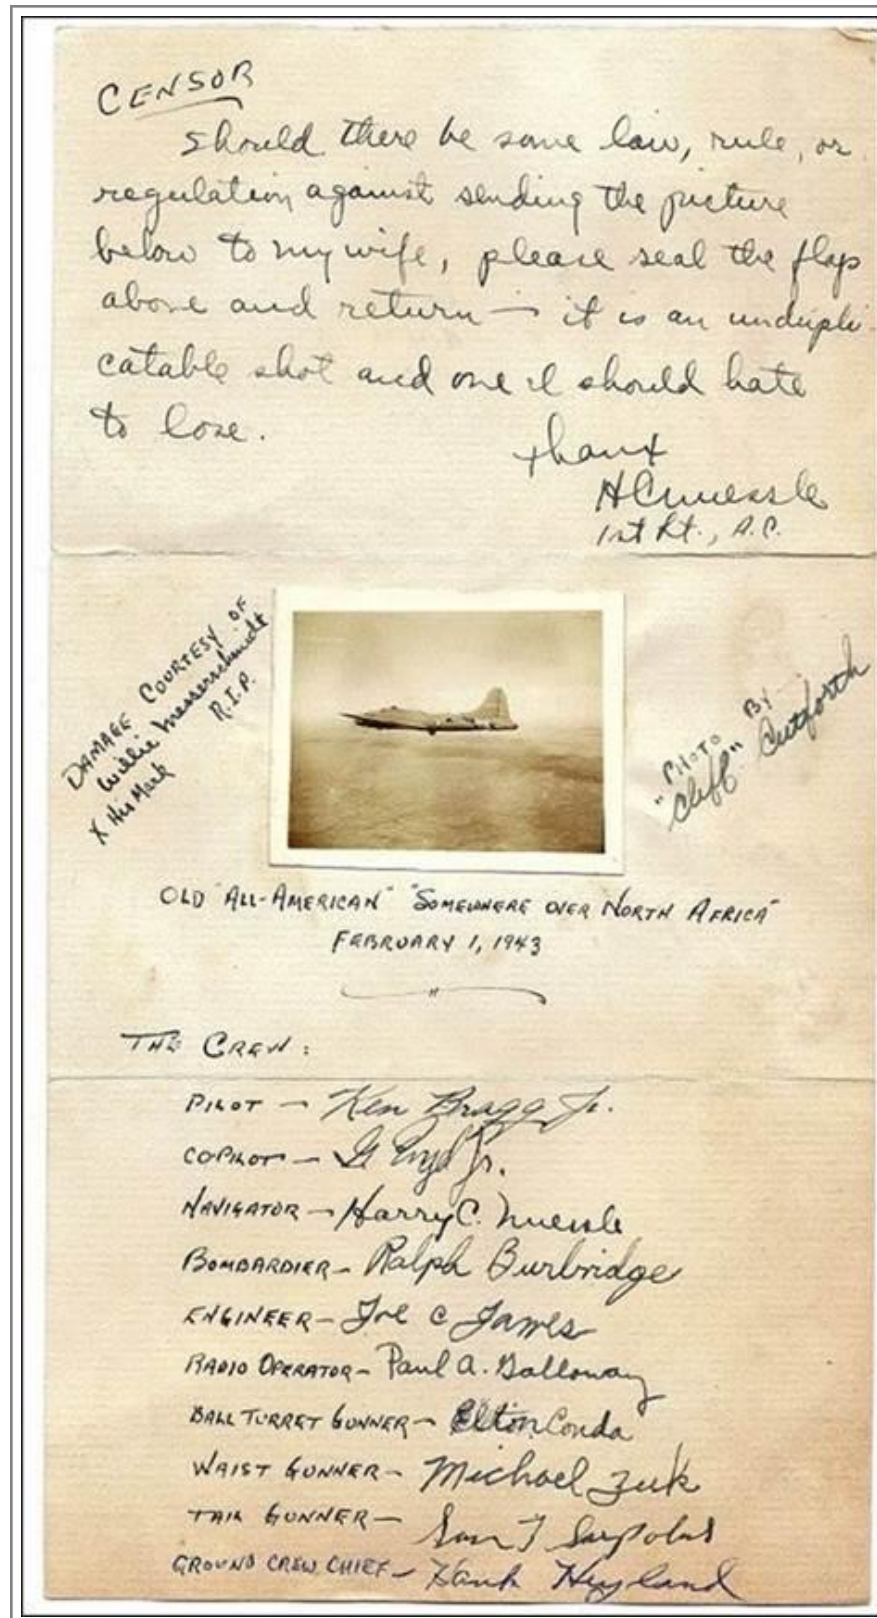 CENSOR
Should there be some law, rule, or
regulation against sending the picture
below to my wife, please seal the flap
above and return — it is an undupli-
catable shot and one I should hate
to lose.
Thanx
HCNuessle
1st Lt., A.C.
DAMAGE COURTESY OF
Willie Messerschmidt
R.I.P.
X His Mark
"PHOTO BY
Cliff" Cutforth
OLD "ALL-AMERICAN" "SOMEWHERE OVER NORTH AFRICA"
FEBRUARY 1, 1943
THE CREW:
PILOT — Ken Bragg Jr.
COPILOT — G Jr.
NAVIGATOR — Harry C. Nuessle
BOMBARDIER — Ralph Burbridge
ENGINEER — Joe C James
RADIO OPERATOR — Paul A. Galloway
BALL TURRET GUNNER — Elton Conda
WAIST GUNNER — Michael Zuk
TAIL GUNNER — Sam T Sarpolus
GROUND CREW CHIEF — Hank Hyland